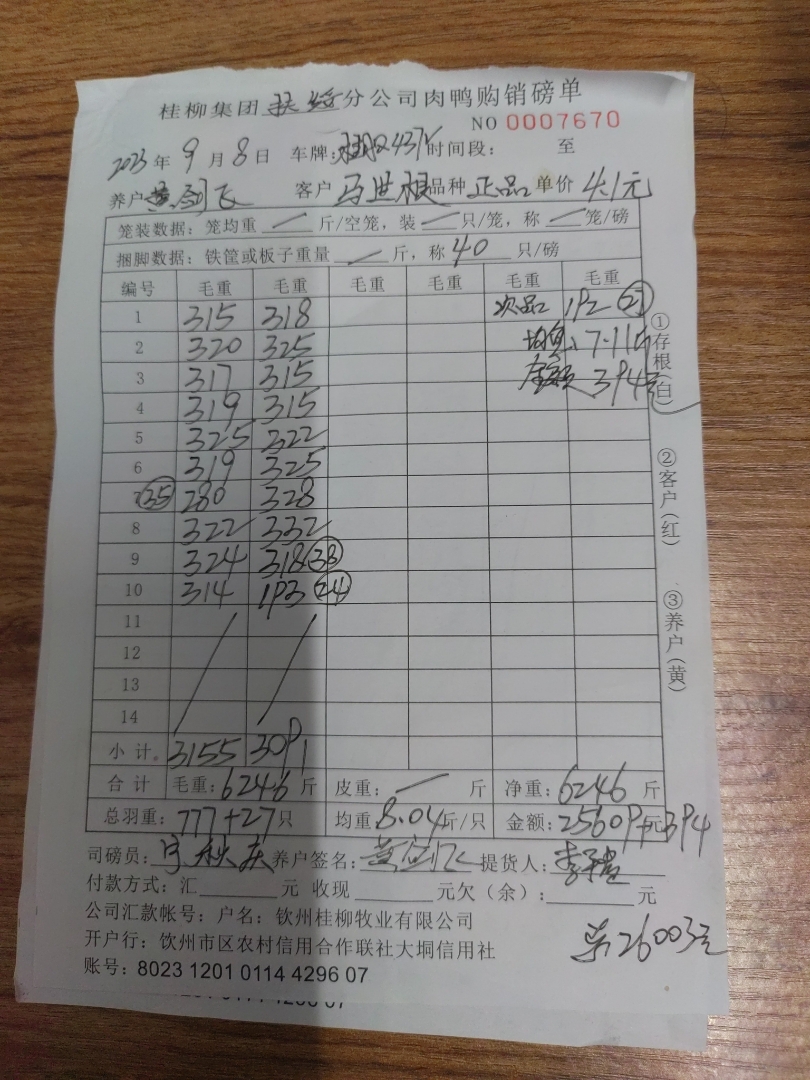 桂柳集团扶绥分公司肉鸭购销磅单
NO 0007670
2023年9月8日 车牌: 时间段: 至
养户黄剑飞 客户马世根品种正品单价4.1元
笼装数据: 笼均重 / 斤/空笼, 装 / 只/笼, 称 / 笼/磅
捆脚数据: 铁筐或板子重量 / 斤, 称40只/磅
编号 毛重 毛重 毛重 毛重 毛重 毛重
1 315 318 次品 192 (27)
2 320 325 均重: 7.11斤
3 317 315 金额 394元
4 319 315
5 325 322
6 319 325
7 (35) 280 328
8 322 332
9 324 318 (38)
10 314 193 (24)
11
12
13
14
小计。 3155 3091
合计 毛重: 6246斤 皮重: / 斤 净重: 6246斤
总羽重: 777+27只 均重8.04斤/只 金额: 25609+元394
司磅员: 养户签名: 黄剑飞 提货人:
付款方式: 汇 元 收现 元欠(余): 元
公司汇款帐号: 户名: 钦州桂柳牧业有限公司
开户行: 饮州市区农村信用合作联社大垌信用社
账号: 8023 1201 0114 4296 07
26003元
①存根(白)
②客户(红)
③养户(黄)